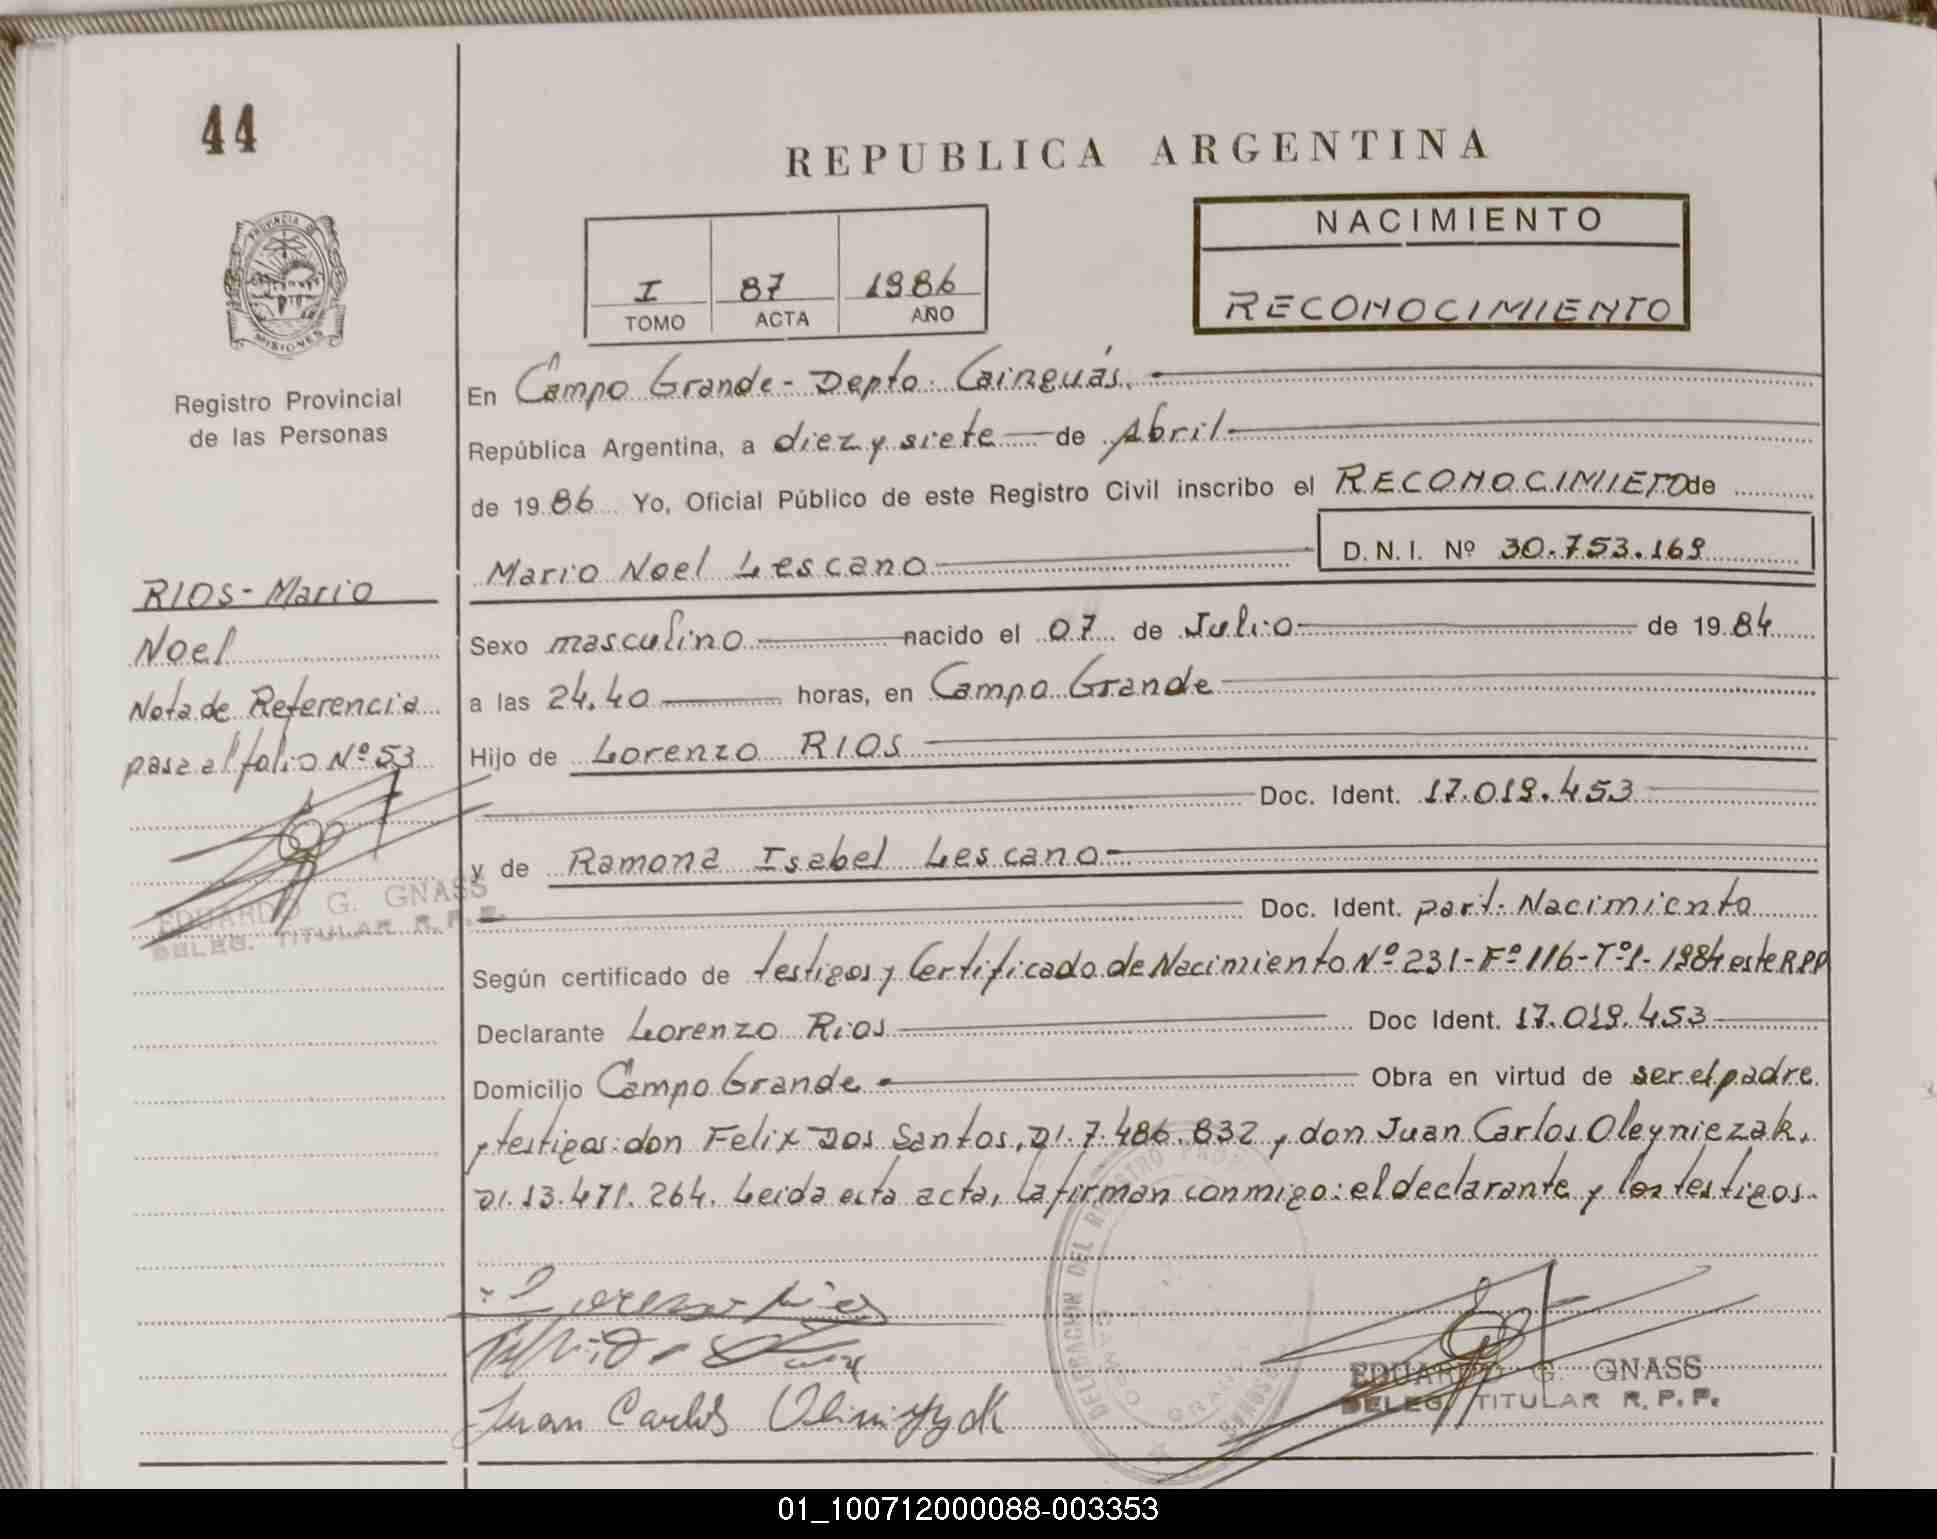 44
REPUBLICA ARGENTINA
PROVINCIA DE
MISIONES
Registro Provincial
de las Personas
I 87 1986
TOMO ACTA AÑO
NACIMIENTO
RECONOCIMIENTO
En Campo Grande - Depto. Cainguás.
República Argentina, a diez y siete de Abril
de 19 86 Yo, Oficial Público de este Registro Civil inscribo el RECONOCIMIETO de
Mario Noel Lescano D.N.I. Nº 30.753.169
Sexo masculino nacido el 07 de Julio de 19 84
a las 24.40 horas, en Campo Grande
Hijo de Lorenzo RIOS
Doc. Ident. 17.019.453
y de Ramona Isabel Lescano
Doc. Ident. part. Nacimiento
Según certificado de testigos y Certificado de Nacimiento Nº 231-Fº 116-Tº1-1984 este RPP
Declarante Lorenzo Rios Doc Ident. 17.019.453
Domicilio Campo Grande Obra en virtud de ser el padre
y testigos: don Felix Dos Santos, DI.7.486.832 y don Juan Carlos Oleyniezak,
DI.13.471.264. Leida esta acta, la firman conmigo: el declarante y los testigos.
RIOS - Mario
Noel
Nota de Referencia
pasa al folio Nº 53
EDUARDO G. GNASS
DELEG. TITULAR R.P.P.
Lorenzo Rios
Juan Carlos
DELEGACION DEL REGISTRO PROV
CAMPO GRANDE
MISIONES
EDUARDO G. GNASS
DELEG. TITULAR R.P.P.
01_100712000088-003353